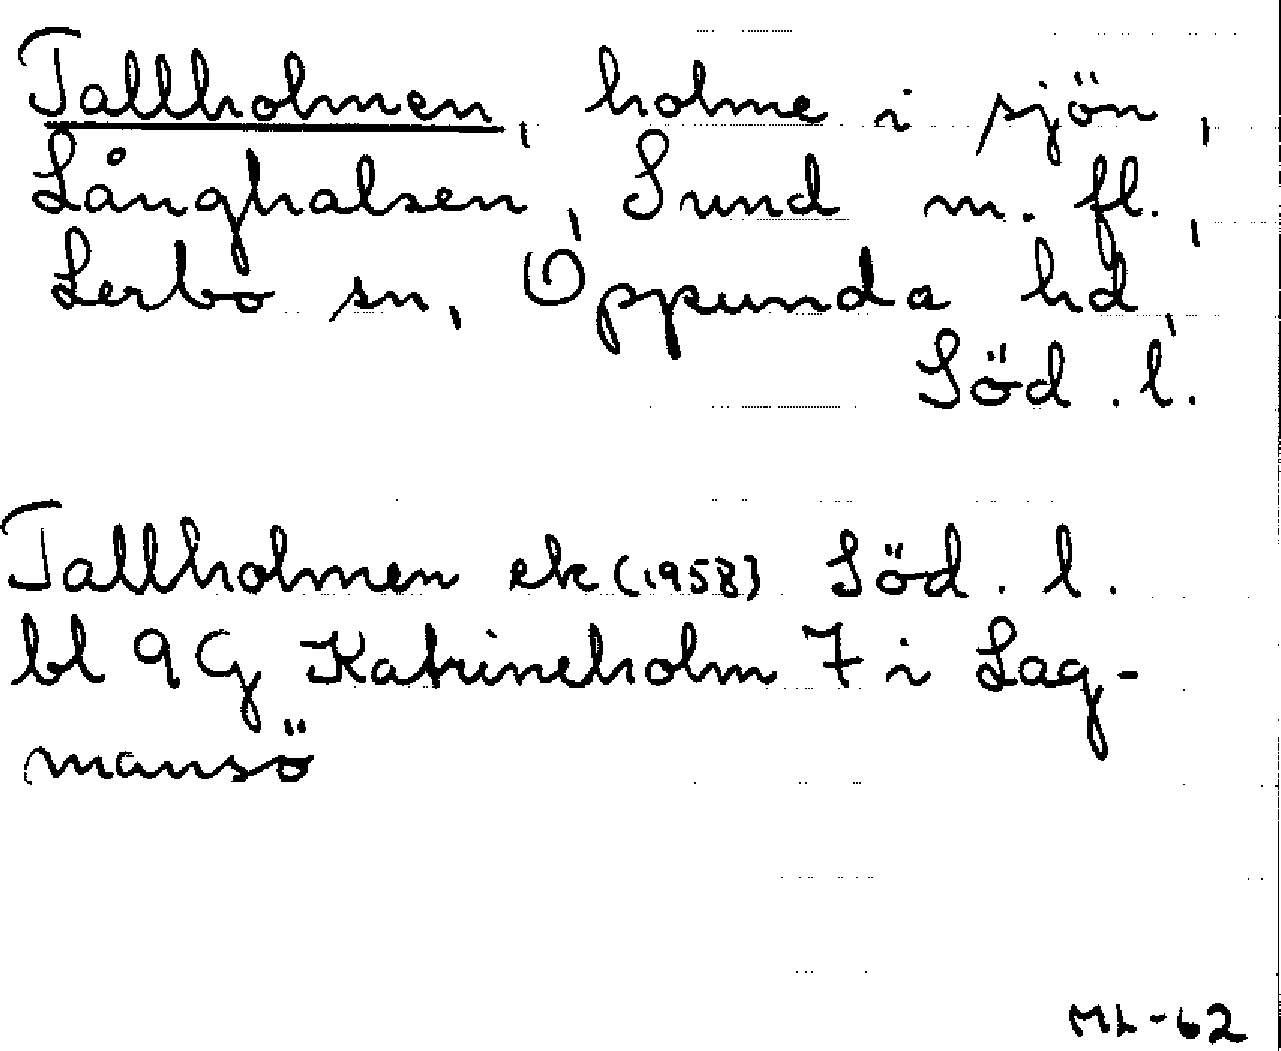 Tallholmen, holme i sjön,
Långhalsen, Sund m. fl.,
Lerbo sn, Oppunda hd,
Söd. l.
Tallholmen ek (1958) Söd. l.
bl 9G Katrineholm 7 i Lag-
mansö
ML-62